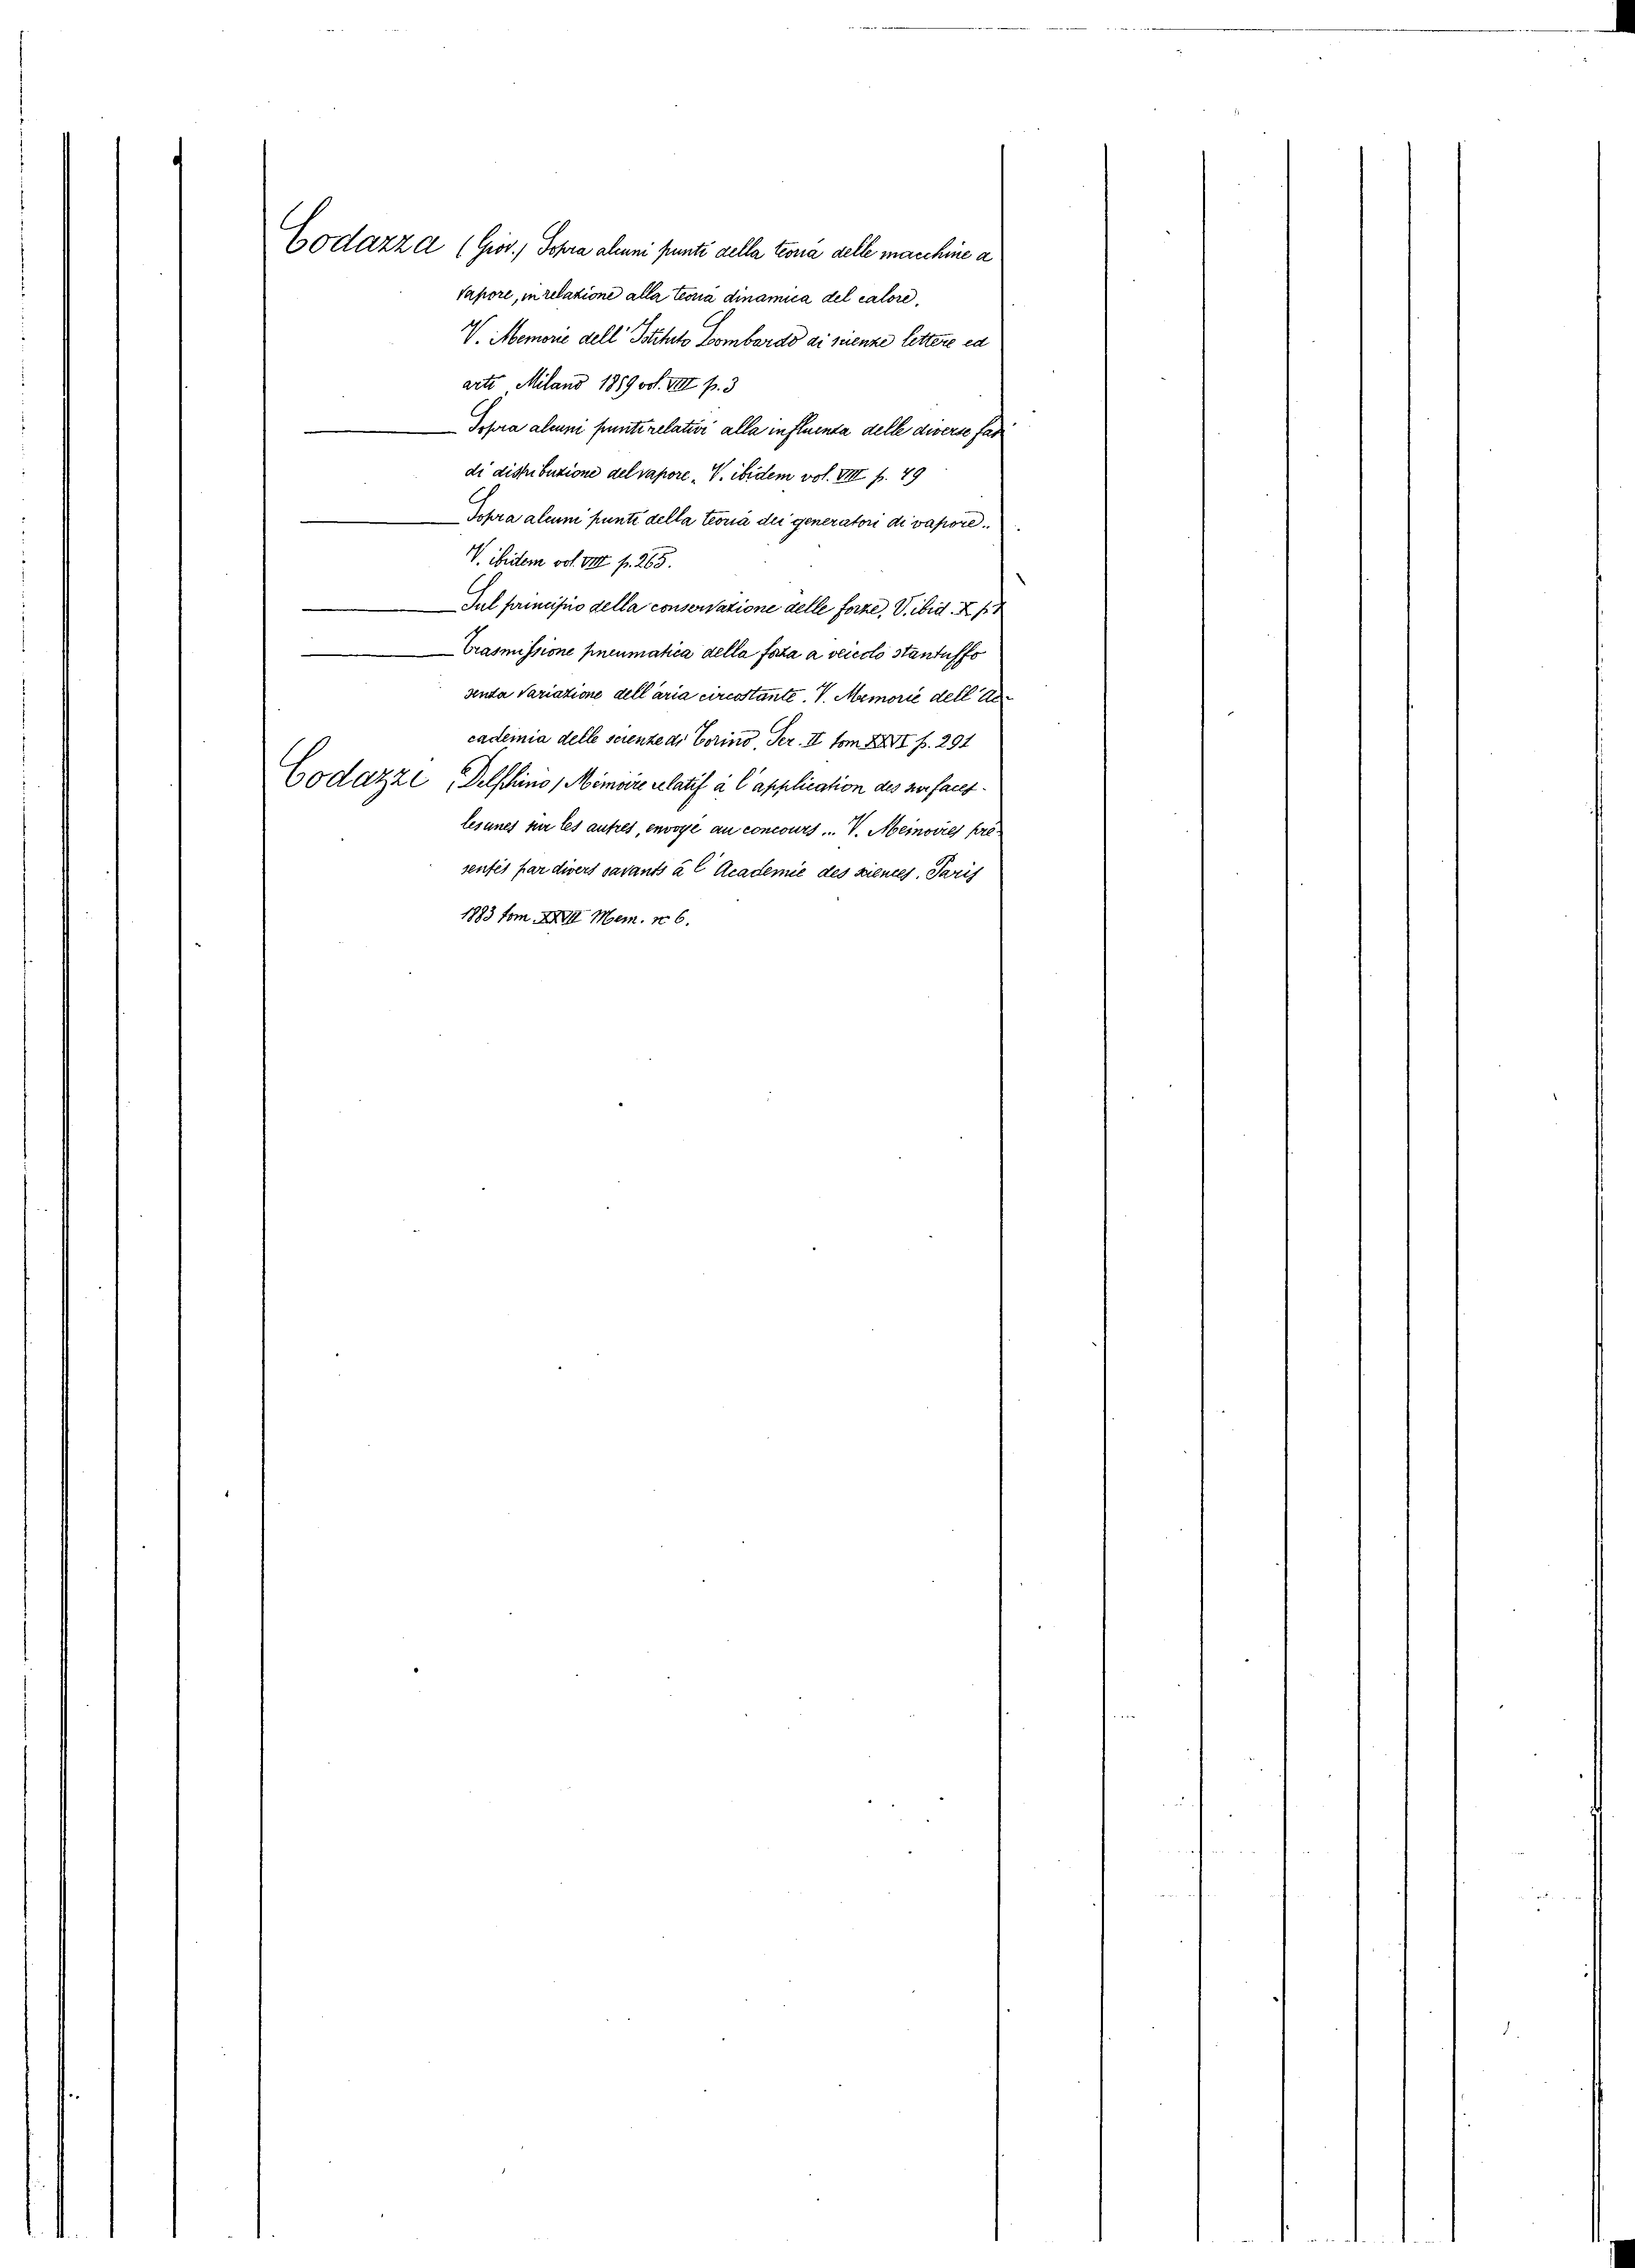 Codazza (Giov.) Sopra alcuni punti della teoria delle macchine a
vapore, in relazione alla teoria dinamica del calore,
V. Memorie dell' Istituto Lombardo di scienze lettere ed
arti, Milano 1859 vol. VIII p. 3
Sopra alcuni punti relativi alla influenza delle diverse fasi
di distribuzione del vapore. V. ibidem vol. VIII p. 79
Sopra alcuni punti della teoria dei generatori di vapore..
V. ibidem vol. VIII p. 265.
Sul principio della conservazione delle forze, V. ibid. X p.
Trasmissione pneumatica della forza a veicolo stantuffo
senza variazione dell'aria circostante. V. Memorie dell' Ac-
cademia delle scienze di Torino, Ser. II tom XXVI p. 291
Codazzi (Delphino) Mémoire relatif à l'application des surfaces
les unes sur les autres, envoyé au concours... V. Memoires pré-
sentés par divers savants à l'Academie des sciences. Paris
1883 tom XXVII Mem. n° 6.